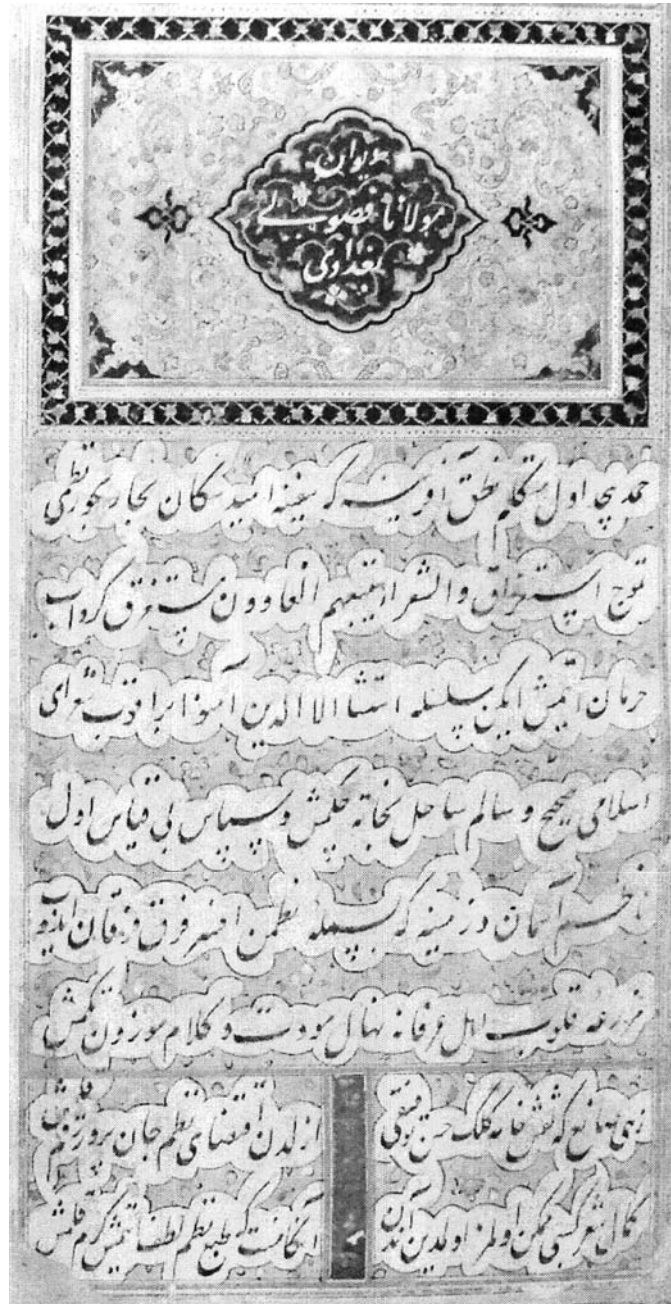 دیوان
مولانا فضولی
بغدادی
حمد بیحد اول متکلم نطق آفرینه که سفینه امید سکان بحار بحور نظمی
تموج استغراق والشعراء یتبعهم الغاوون مستغرق گرداب
حرمان ایتمش ایکن سلسله استثنا الا الذین آمنوا براقوب شعرای
اسلامی صحیح و سالم ساحل نجاته چکمش و سپاس بی قیاس اول
ناظم آسمان و زمینه که بسمله نظمن افسر فرق فرقان ایدوب
مزرعه قلوب اهل عرفانه نهال مودت و کلام موزون دکمش
زهی صانع که نقش خانه کلک حسن توفیقی
ازلدن اقتضای نظم جان پرور رقم قلمش
کمال شعر کسبی ممکن اولمز اولمدین آندن
آکا کیم طبع نظم لطف ایتمش کرم قلمش